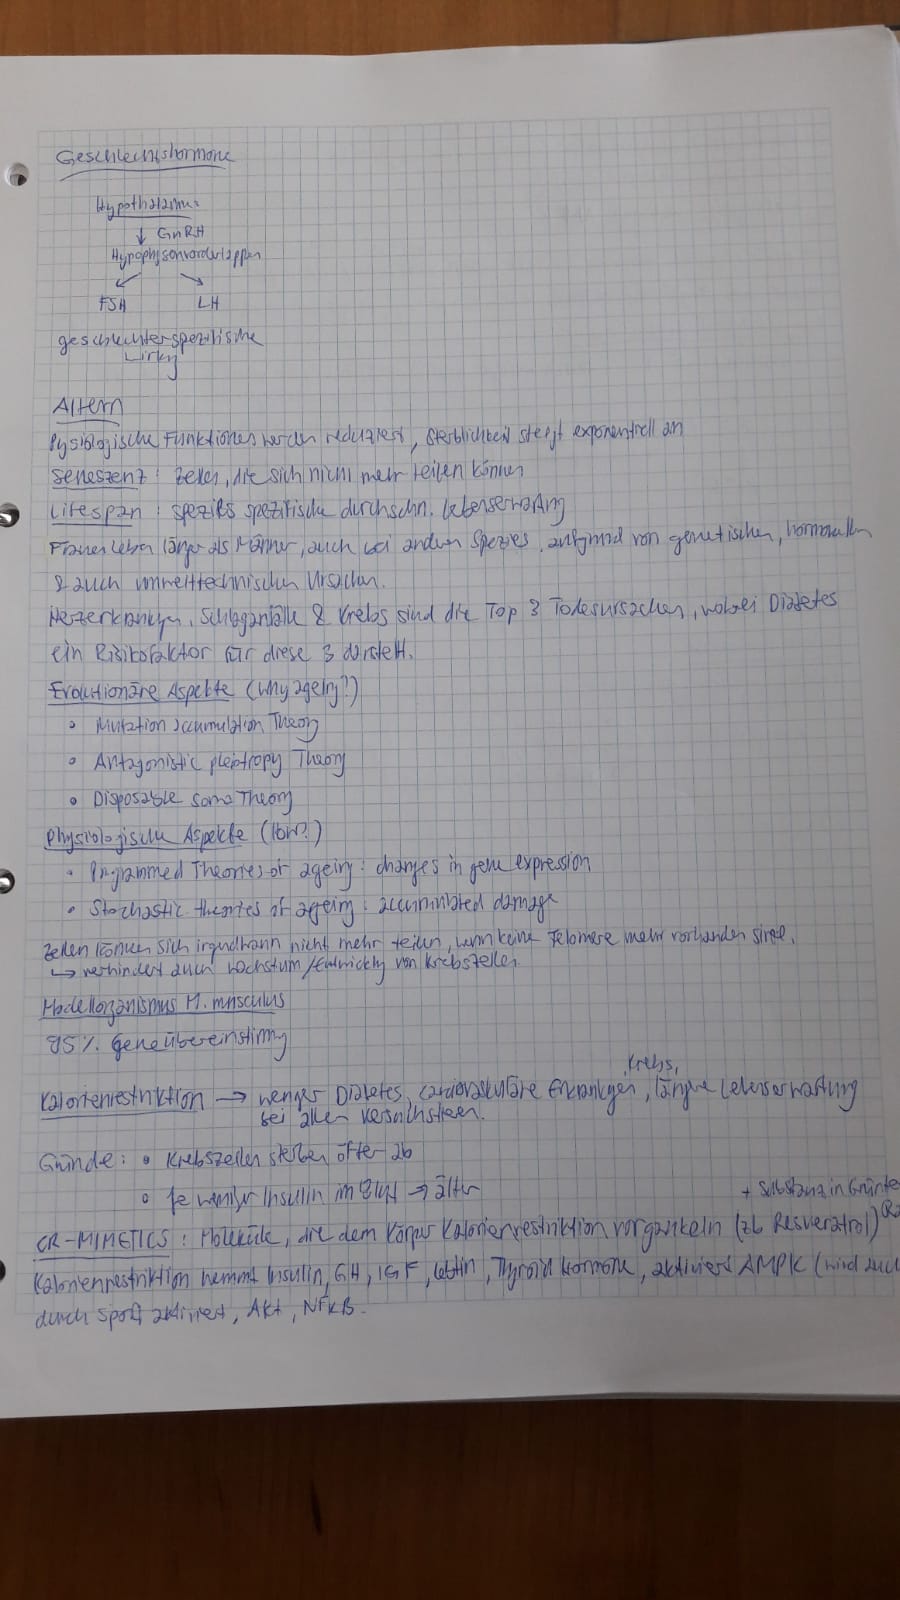 Geschlechtshormone
Hypothalamus
↓ GnRH
Hypophysenvorderlappen
↙ ↘
FSH LH
geschlechterspezifische
Wirkg
Altern
Pysiologische Funktionen werden reduziert, Sterblichkeit steigt exponentiell an
Seneszenz: Zellen, die sich nicht mehr teilen können
Lifespan: spezifische durchschn. Lebenserwartung
Frauen leben länger als Männer, auch bei anderen Spezies, aufgrund von genetischen, hormonellen
& auch umwelttechnischen Ursachen.
Herzerkrankungen, Schlaganfälle & Krebs sind die Top 3 Todesursachen, wobei Diabetes
ein Risikofaktor für diese 3 darstellt.
Evolutionäre Aspekte (why ageing?)
• Mutation accumulation Theory
• Antagonistic pleiotropy Theory
• Disposable soma Theory
Physiologische Aspekte (How?)
• Programmed Theories of ageing: changes in gene expression
• Stochastic theories of ageing: accumulated damage
Zellen können sich irgendwann nicht mehr teilen, wenn keine Telomere mehr vorhanden sind.
↳ verhindert auch Wachstum/Entwicklg von Krebszellen.
Modellorganismus M. musculus
95% Geneübereinstimmg
Krebs,
Kalorienrestriktion → weniger Diabetes, cardiovaskuläre Erkrankungen, längere Lebenserwartung
bei allen Versuchstieren.
Gründe: • Krebszellen sterben öfter ab
• Je weniger Insulin im Blut → älter
+ Substanz in
CR-MIMETICS: Moleküle, die dem Körper Kalorienrestriktion vorgaukeln (zb Resveratrol)
Kalorienrestriktion hemmt Insulin, GH, IGF, Leptin, Thyroid Hormone, aktiviert AMPK (wird auch
durch Sport aktiviert, Akt, NFkB.